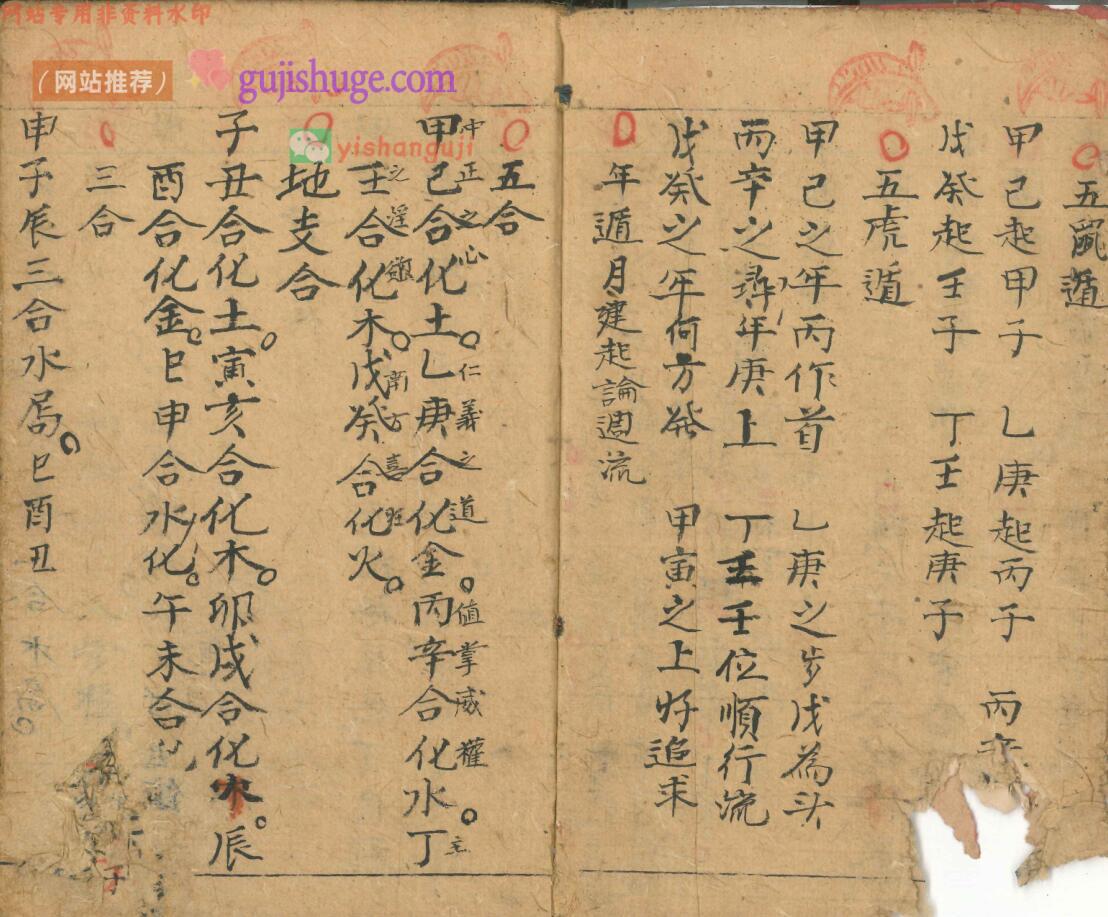 网站专用非资料水印
（网站推荐）
gujishuge.com
yishanguji
五鼠遁
甲己起甲子 乙庚起丙子 丙辛
戊癸起壬子 丁壬起庚子
五虎遁
甲己之年丙作首 乙庚之步戊為头
丙辛之尋年庚上 丁壬壬位順行流
戊癸之年何方發 甲寅之上好追求
年遁月建起論週流
五合
中正之心 仁義之道 值掌威權 主
甲己合化土。乙庚合化金。丙辛合化水。丁
之淫 南方喜
壬合化木。戊癸合化火。
地支合
子丑合化土。寅亥合化木。卯戌合化。辰
酉合化金。巳申合水化。午未合化
三合
申子辰三合水局。巳酉丑